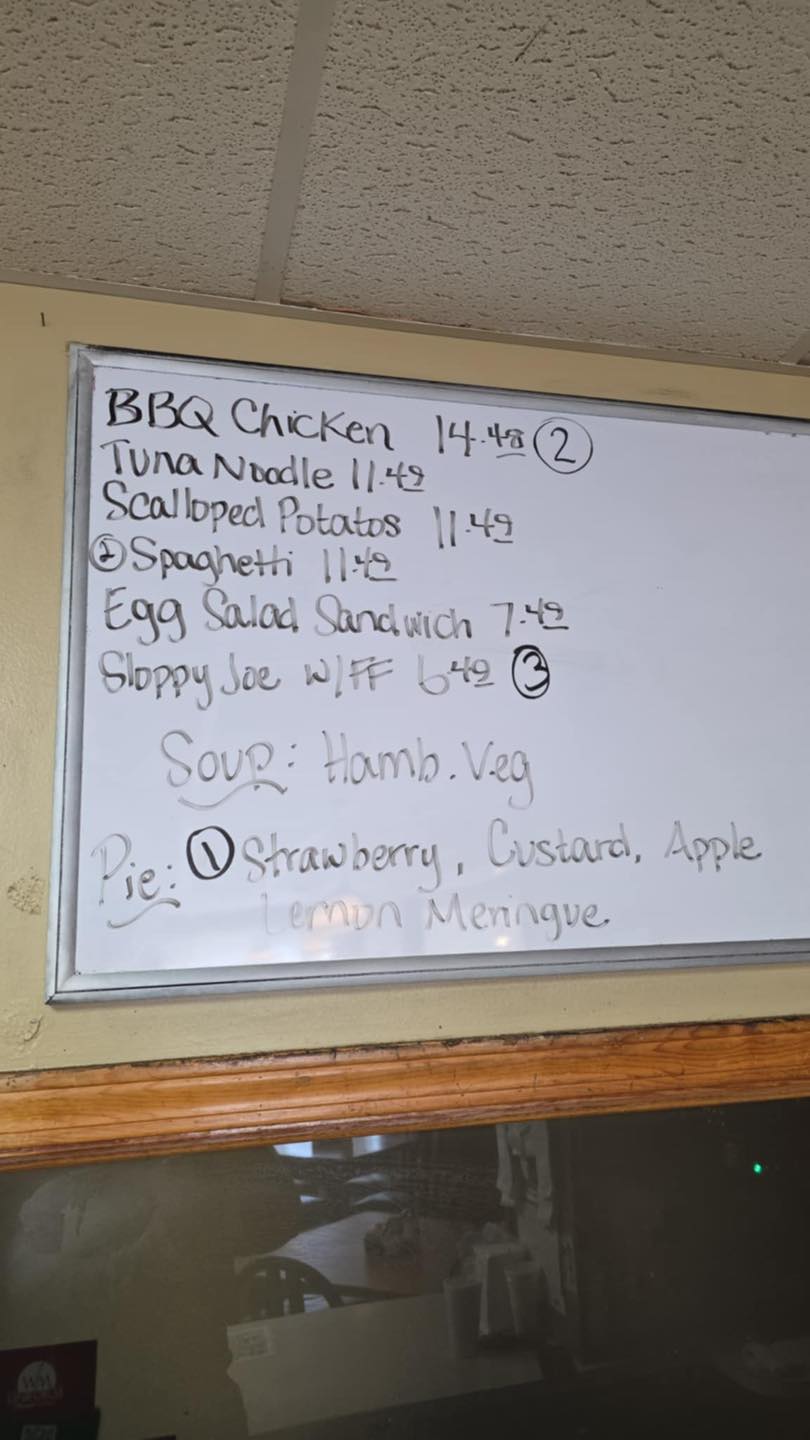 BBQ Chicken 14.48 ②
Tuna Noodle 11.49
Scalloped Potatos 11.49
② Spaghetti 11.49
Egg Salad Sandwich 7.49
Sloppy Joe W/FF 6.49 ③
Soup: Hamb. Veg
Pie: ① Strawberry, Custard, Apple
Lemon Meringue